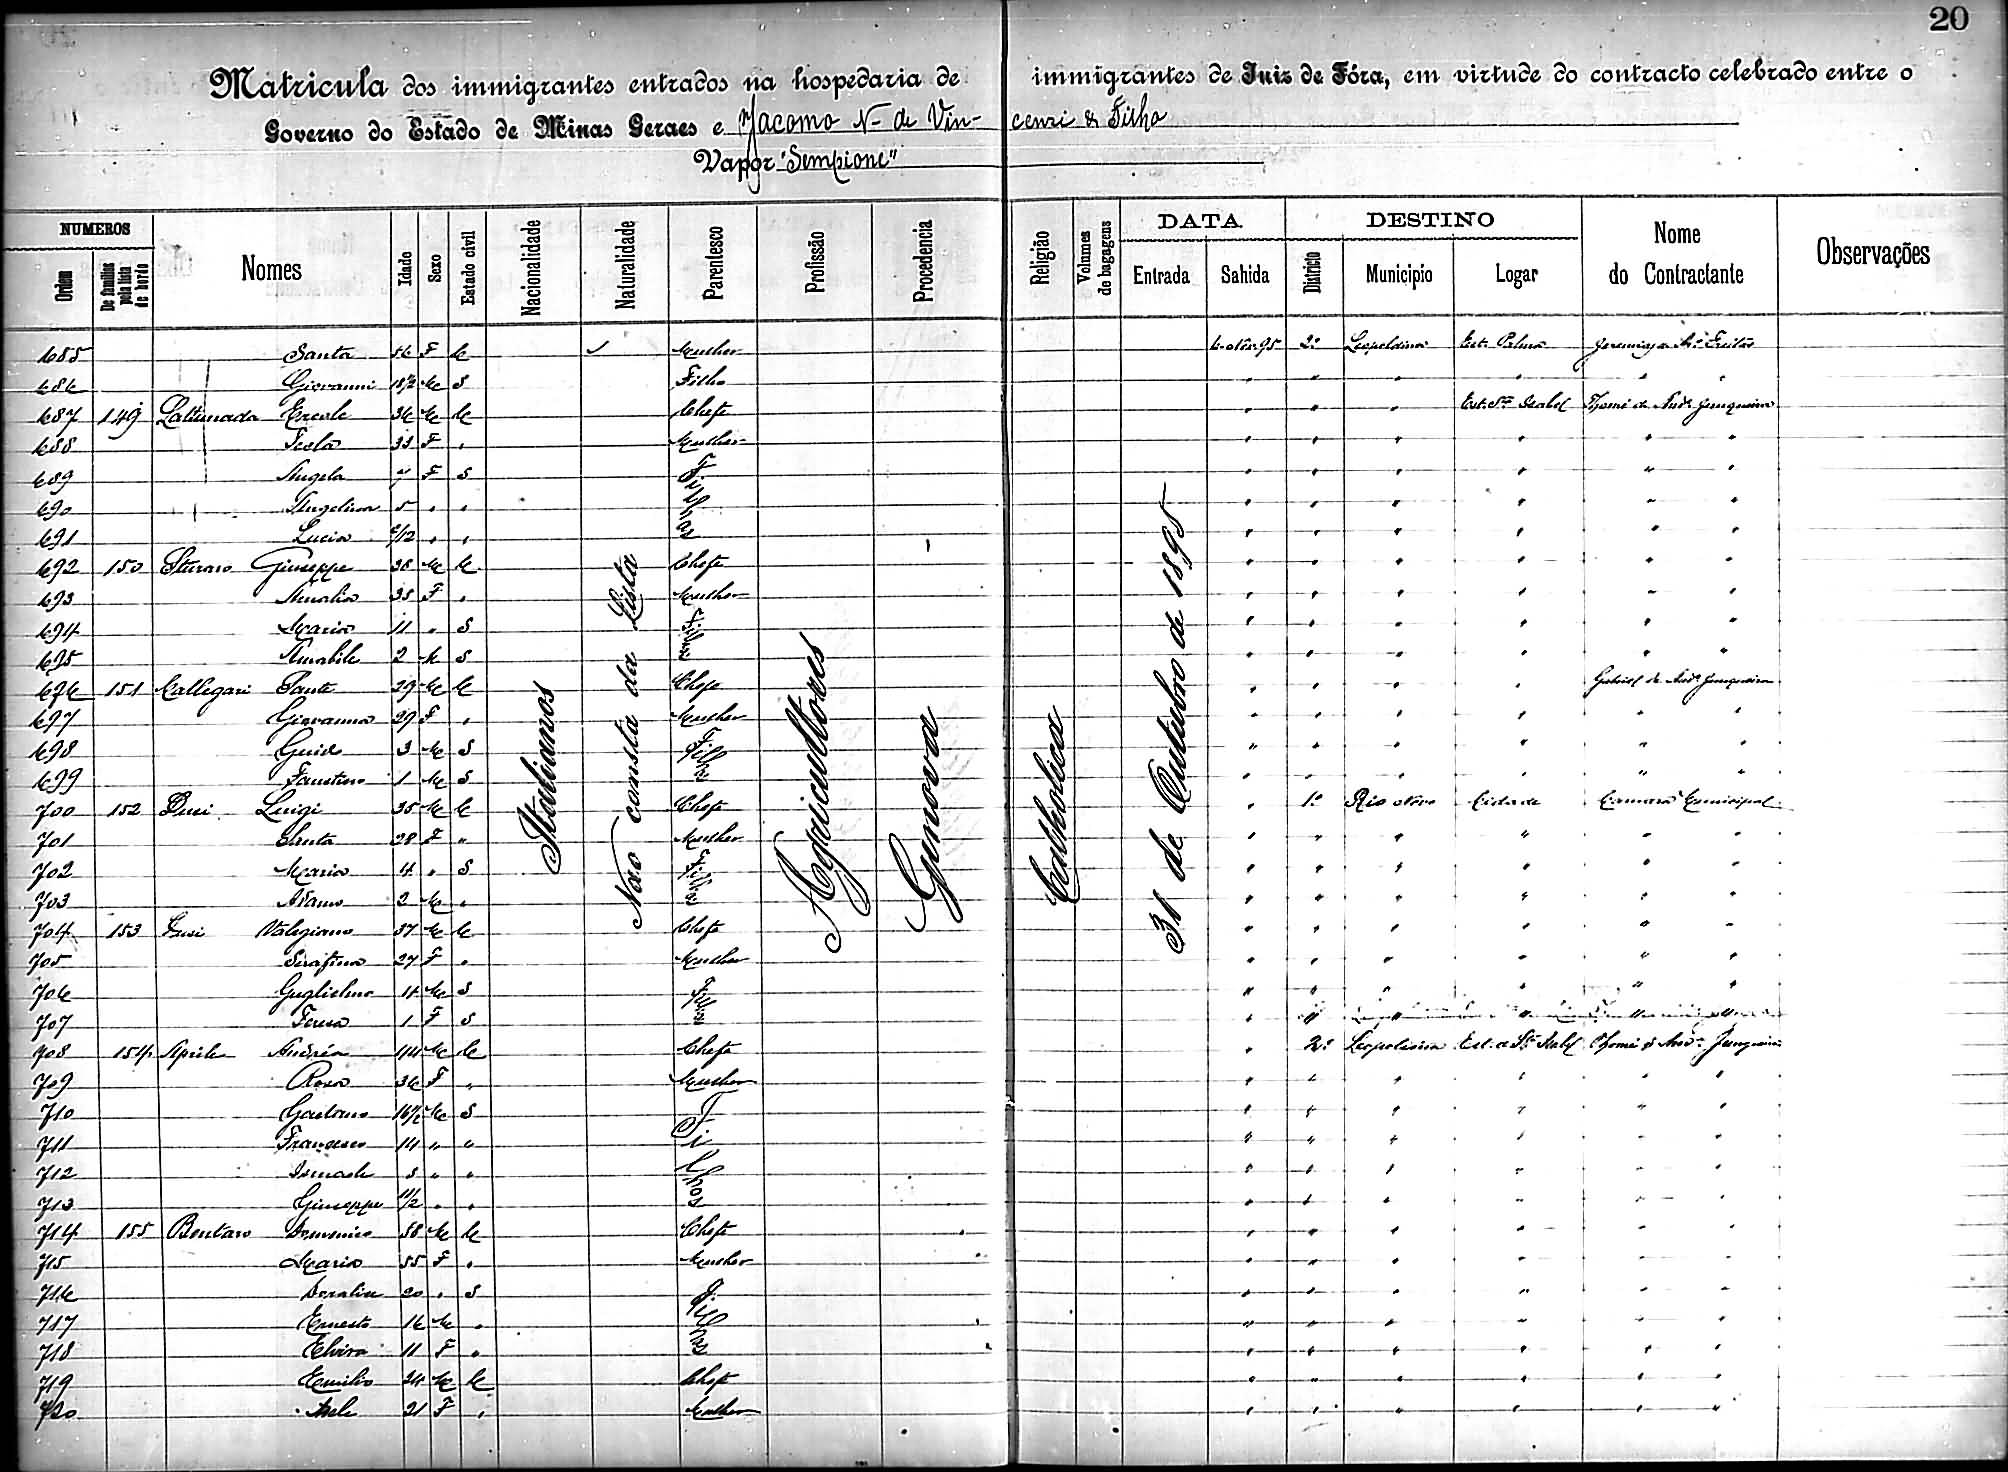 20
Matricula dos immigrantes entrados na hospedaria de immigrantes de Juiz de Fóra, em virtude do contracto celebrado entre o
Governo do Estado de Minas Geraes e Jacomo N. de Vincenzi & Filho
Vapor "Sempione"
NUMEROS Nomes Idade Sexo Estado civil Nacionalidade Naturalidade Parentesco Profissão Procedencia Religião Volumes de bagagens DATA DESTINO Nome do Contractante Observações
Ordem De familia pela lista de bordo Entrada Sahida Districto Municipio Logar
Italianos
Não consta da Lista
Agricultores
Genova
Catholica
31 de Outubro de 1895
685 Santa 56 F C Mulher 2º Leopoldina Est. Palma
686 Giovanni 18½ M S Filho " " " " "
687 149 Ercole 36 M C Chefe " " " Est. Sta Isabel Thomé de Andr. Junqueira
688 33 F " Mulher " " " " " "
689 Angela 7 F S Filhas " " " " " "
690 Angelina 5 " " " " " " " "
691 Lucia /12 " " " " " " " "
692 150 Sturaro Giuseppe 38 M C Chefe " " " " " "
693 Amalia 33 F " Mulher " " " " " "
694 Maria 11 " S Filhos " " " " " "
695 Amabile 2 M S " " " " " "
696 151 Callegari Sante 29 M C Chefe " " " " Gabriel de Andr. Junqueira
697 Giovanna 29 F " Mulher " " " " " "
698 Guido 3 M S Filhos " " " " " "
699 Faustino 1 M S " " " " " "
700 152 Luigi 35 M C Chefe " 1º Rio Novo Cidade Camara Municipal
701 28 F " Mulher " " " " " "
702 Maria 4 " S Filhos " " " " " "
703 Adamo 2 M " " " " " " "
704 153 Valegiano 37 M C Chefe " " " " " "
705 Serafina 27 F " Mulher " " " " " "
706 Guglielmo 4 M S Filhos " " " " " "
707 1 F S " " " " " "
708 154 Aprile Andréa 44 M C Chefe " 2º Leopoldina Est. de Sta Isabel Thomé de Andr. Junqueira
709 Rosa 36 F " Mulher " " " " " "
710 Gaetano 16½ M S Filhos " " " " " "
711 Francesco 14 " " " " " " " "
712 Ismaele 8 " " " " " " " "
713 Giuseppe 1½ " " " " " " " "
714 155 Domenico 58 M C Chefe " " " " " "
715 Maria 55 F " Mulher " " " " " "
716 20 " S Filhos " " " " " "
717 Ernesto 16 M " " " " " " "
718 Elvira 11 F " " " " " " "
719 Emilio 24 M C Chefe " " " " " "
720 Adele 21 F " Mulher " " " " " "